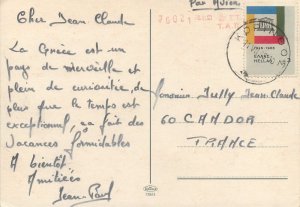 Cher Jean Claude
La Grèce est un
pays de merveille et
plein de curiosités, de
plus que le temps est
exceptionnel, ça fait des
Vacances formidables
A bientôt
Amitiées
Jean-Paul
Par Avion
Monsieur Jully Jean-Claude
60 CANDOR
FRANCE
ΕΛΛΑΣ
HELLAS